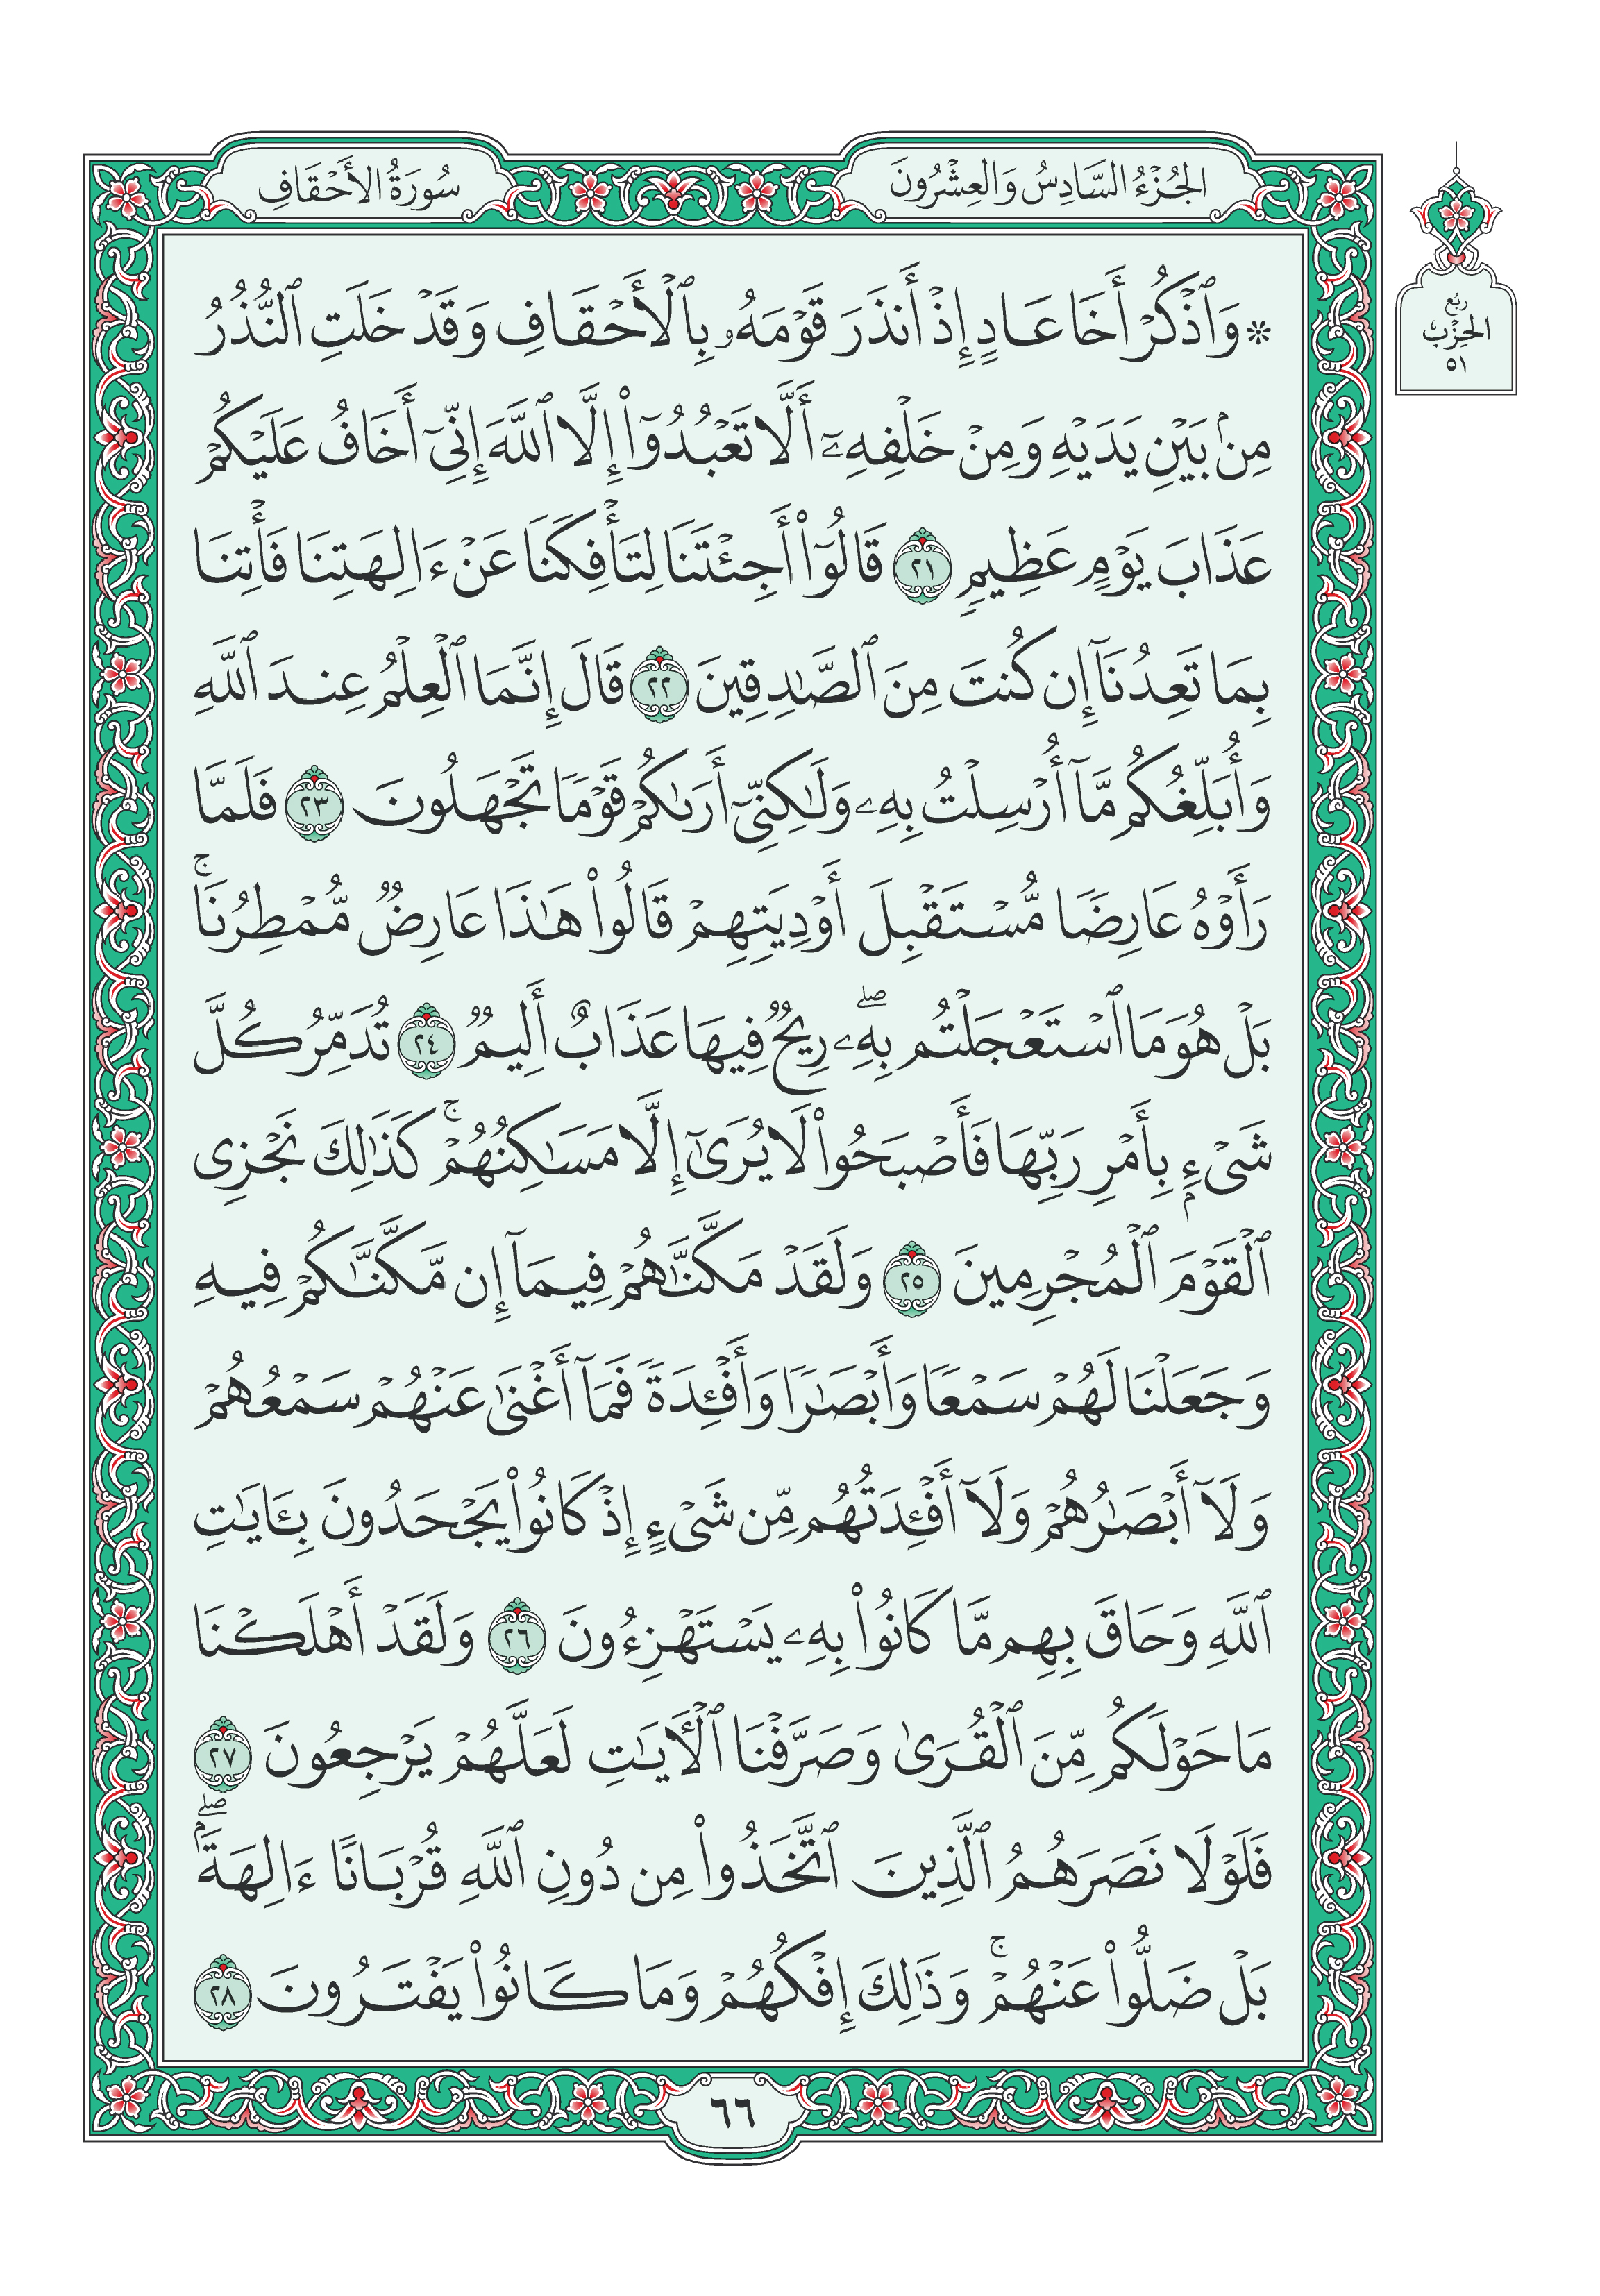 الجُزْءُ السَّادِسُ وَالْعِشْرُونَ
سُورَةُ الأَحْقَافِ
ربع
الحِزْب
٥١
۞ وَٱذْكُرْ أَخَا عَادٍ إِذْ أَنذَرَ قَوْمَهُۥ بِٱلْأَحْقَافِ وَقَدْ خَلَتِ ٱلنُّذُرُ
مِنۢ بَيْنِ يَدَيْهِ وَمِنْ خَلْفِهِۦٓ أَلَّا تَعْبُدُوٓا۟ إِلَّا ٱللَّهَ إِنِّىٓ أَخَافُ عَلَيْكُمْ
عَذَابَ يَوْمٍ عَظِيمٍ ٢١ قَالُوٓا۟ أَجِئْتَنَا لِتَأْفِكَنَا عَنْ ءَالِهَتِنَا فَأْتِنَا
بِمَا تَعِدُنَآ إِن كُنتَ مِنَ ٱلصَّٰدِقِينَ ٢٢ قَالَ إِنَّمَا ٱلْعِلْمُ عِندَ ٱللَّهِ
وَأُبَلِّغُكُم مَّآ أُرْسِلْتُ بِهِۦ وَلَٰكِنِّىٓ أَرَىٰكُمْ قَوْمًا تَجْهَلُونَ ٢٣ فَلَمَّا
رَأَوْهُ عَارِضًا مُّسْتَقْبِلَ أَوْدِيَتِهِمْ قَالُوا۟ هَٰذَا عَارِضٌ مُّمْطِرُنَا ۚ
بَلْ هُوَ مَا ٱسْتَعْجَلْتُم بِهِۦ ۖ رِيحٌ فِيهَا عَذَابٌ أَلِيمٌ ٢٤ تُدَمِّرُ كُلَّ
شَىْءٍۭ بِأَمْرِ رَبِّهَا فَأَصْبَحُوا۟ لَا يُرَىٰٓ إِلَّا مَسَٰكِنُهُمْ ۚ كَذَٰلِكَ نَجْزِى
ٱلْقَوْمَ ٱلْمُجْرِمِينَ ٢٥ وَلَقَدْ مَكَّنَّٰهُمْ فِيمَآ إِن مَّكَّنَّٰكُمْ فِيهِ
وَجَعَلْنَا لَهُمْ سَمْعًا وَأَبْصَٰرًا وَأَفْـِٔدَةً فَمَآ أَغْنَىٰ عَنْهُمْ سَمْعُهُمْ
وَلَآ أَبْصَٰرُهُمْ وَلَآ أَفْـِٔدَتُهُم مِّن شَىْءٍ إِذْ كَانُوا۟ يَجْحَدُونَ بِـَٔايَٰتِ
ٱللَّهِ وَحَاقَ بِهِم مَّا كَانُوا۟ بِهِۦ يَسْتَهْزِءُونَ ٢٦ وَلَقَدْ أَهْلَكْنَا
مَا حَوْلَكُم مِّنَ ٱلْقُرَىٰ وَصَرَّفْنَا ٱلْـَٔايَٰتِ لَعَلَّهُمْ يَرْجِعُونَ ٢٧
فَلَوْلَا نَصَرَهُمُ ٱلَّذِينَ ٱتَّخَذُوا۟ مِن دُونِ ٱللَّهِ قُرْبَانًا ءَالِهَةًۢ ۖ
بَلْ ضَلُّوا۟ عَنْهُمْ ۚ وَذَٰلِكَ إِفْكُهُمْ وَمَا كَانُوا۟ يَفْتَرُونَ ٢٨
٦٦